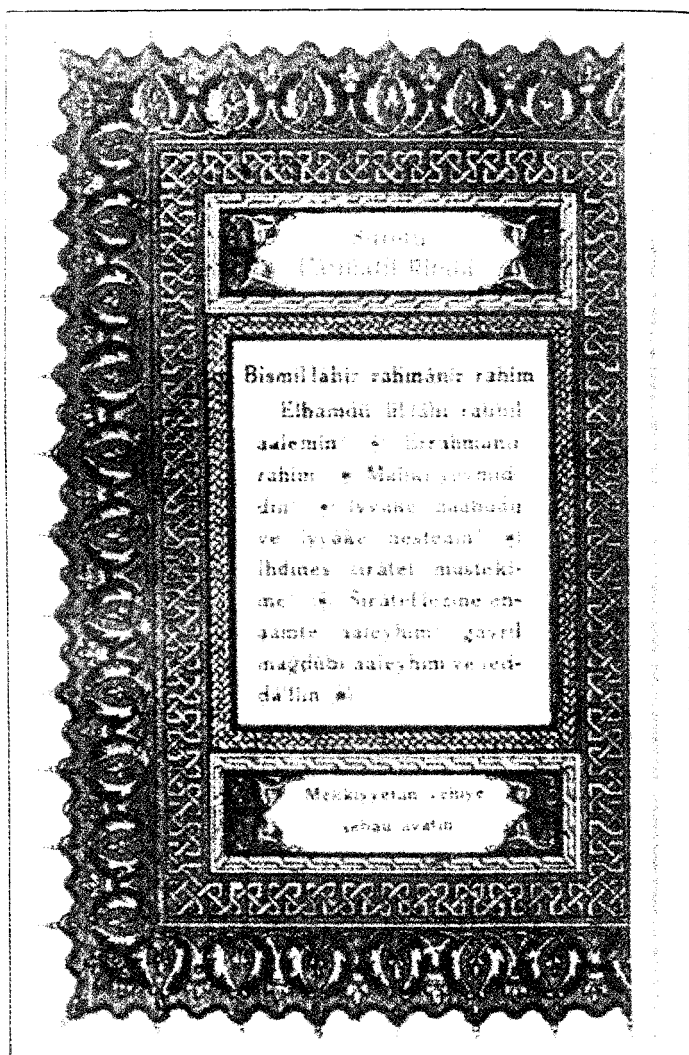 Sûretü
Fâtihatil Kitabi
Bismillahir rahmânir rahim
Elhamdü lillâhi rabbil
aalemin * Errahmanir
rahim * Maliki yevmid-
din * İyyâke naabüdü
ve iyyâke nesteain *
İhdines sırâtel müsteki-
me * Sırâtellezine en-
aamte aaleyhim gayril
magdûbi aaleyhim ve led-
dâllin *
Mekkiyyetün vehiye
sebau ayatin